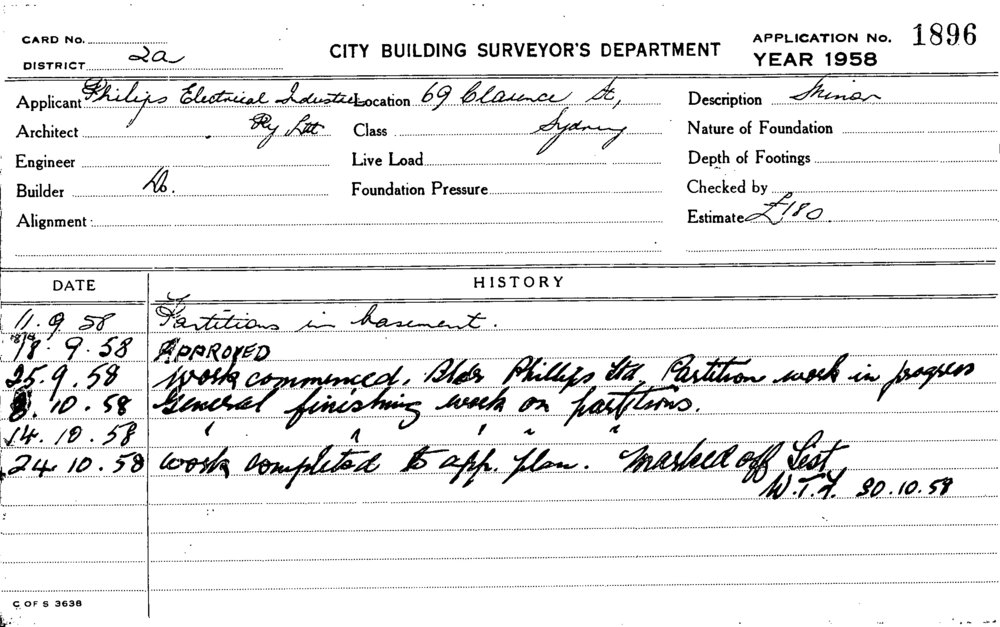 CARD No.
DISTRICT 2a
CITY BUILDING SURVEYOR'S DEPARTMENT
APPLICATION No. 1896
YEAR 1958
Applicant Philips Electrical Industries Location 69 Clarence St, Description Minor
Architect Pty Ltd Class Sydney Nature of Foundation
Engineer Live Load Depth of Footings
Builder Do. Foundation Pressure Checked by
Alignment Estimate £180
DATE HISTORY
11.9.58 Partitions in basement.
18.9.58 APPROVED
25.9.58 Work commenced. Bldr Phillips Ltd Partition work in progress
8.10.58 General finishing work on partitions.
14.10.58 " " " " "
24.10.58 Work completed to app. plan. Marked off List
W.T.Y. 30.10.58
C OF S 3638